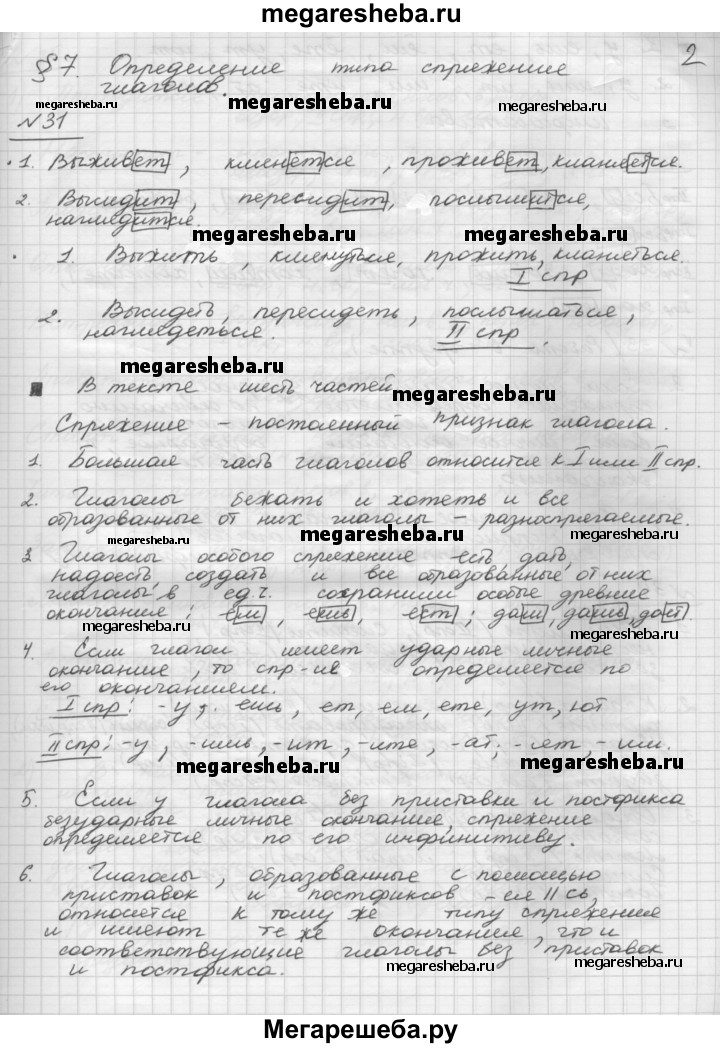 megaresheba.ru
2
§7. Определение типа спряжение
глаголов.
megaresheba.ru megaresheba.ru megaresheba.ru
№31
1. Выживет, клянется, проживет, кланяется.
2. Высидит, пересидит, послышится,
наглядится.
megaresheba.ru megaresheba.ru
1. Выжить, клянуться, прожить, кланяеться.
I спр
2. Высидеть, пересидеть, послышаться,
наглядеться. II спр.
megaresheba.ru
В тексте шесть частей.
megaresheba.ru
Спряжение – постоянный признак глагола.
1. Большая часть глаголов относится к I или II спр.
2. Глаголы бежать и хотеть и все
образованные от них глаголы – разноспрягаемые.
megaresheba.ru megaresheba.ru
3 Глаголы особого спряжения есть, дать,
надоесть, создать и все образованные от них
глаголы в ед.ч. сохранили особые древние
окончание; ем, ешь, ест; дам, дашь, даст.
megaresheba.ru megaresheba.ru
4. Если глагол имеет ударные личные
окончание, то спр-ие определяется по
его окончанием.
I спр: -у, ешь, ет, ем, ете, ут, ют
II спр: -у, -ишь, -ит, -ите, -ат, -ят, -им.
megaresheba.ru megaresheba.ru
5. Если у глагола без приставки и постфикса
безударные личные окончание, спряжение
определяется по его инфинитиву.
6. Глаголы, образованные с помощью
приставок и постфиксов -ся II сь,
относятся к тому же типу спряжения
и имеют те же окончание, что и
соответствующие глаголы без приставок
и постфикса.
megaresheba.ru megaresheba.ru
Мегарешеба.ру